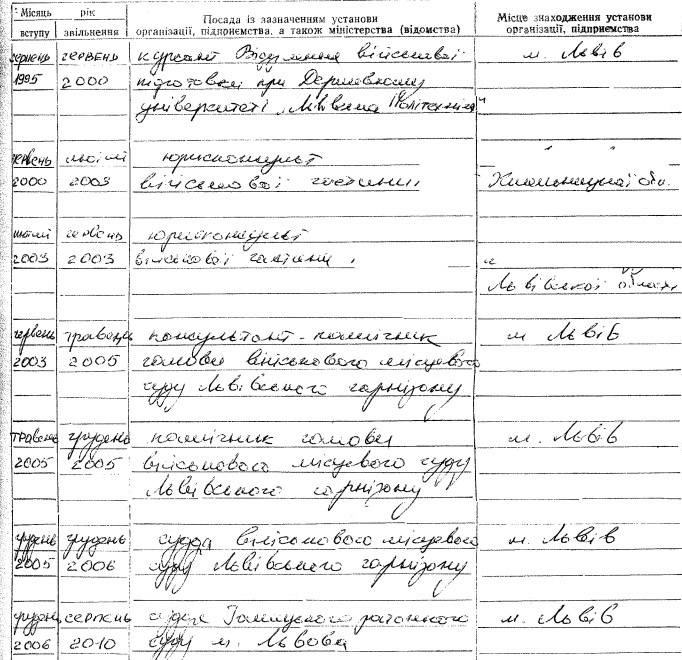 Місяць рік Посада із зазначенням установи Місце знаходження установи
вступу звільнення організації, підприємства, а також міністерства (відомства) організації, підприємства
серпень червень курсант Відділення військової м. Львів
1995 2000 підготовки при Державному
університеті „Львівська Політехніка"
червень лютий юрисконсульт " "
2000 2003 військової частини, Хмельницької обл.
лютий червень юрисконсульт
2003 2003 військової частини,
Львівської області
червень травень консультант-помічник м Львів
2003 2005 голови військового місцевого
суду Львівського гарнізону
травень грудень помічник голови м. Львів
2005 2005 військового місцевого суду
Львівського гарнізону
грудень грудень суддя військового місцевого м. Львів
2005 2006 суду Львівського гарнізону
грудень серпень суддя Галицького районного м. Львів
2006 2010 суду м. Львова